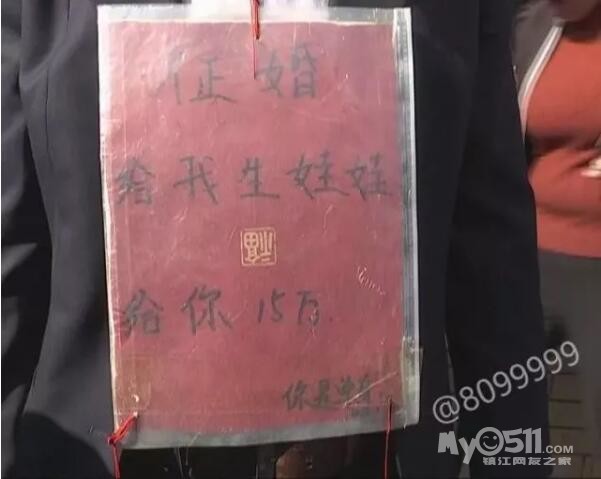 征婚
给我生娃娃
福
给你15万.
你是单身
@8099999
My0511.com
镇江网友之家